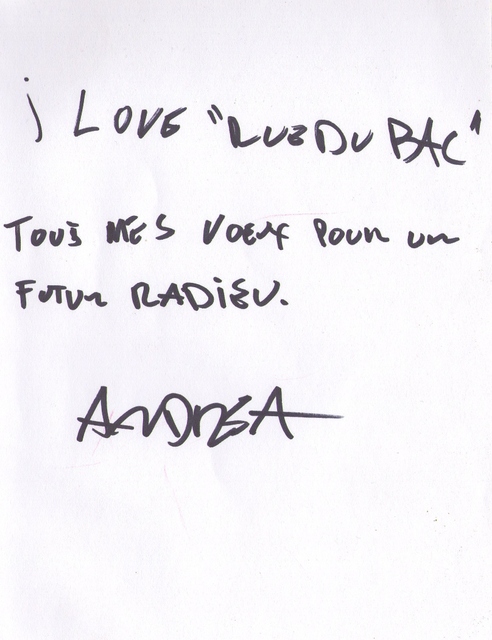 i LOVE "RUE DU BAC"
TOUS MES VOEUX POUR UN
FUTUR RADIEU.
ANDREA